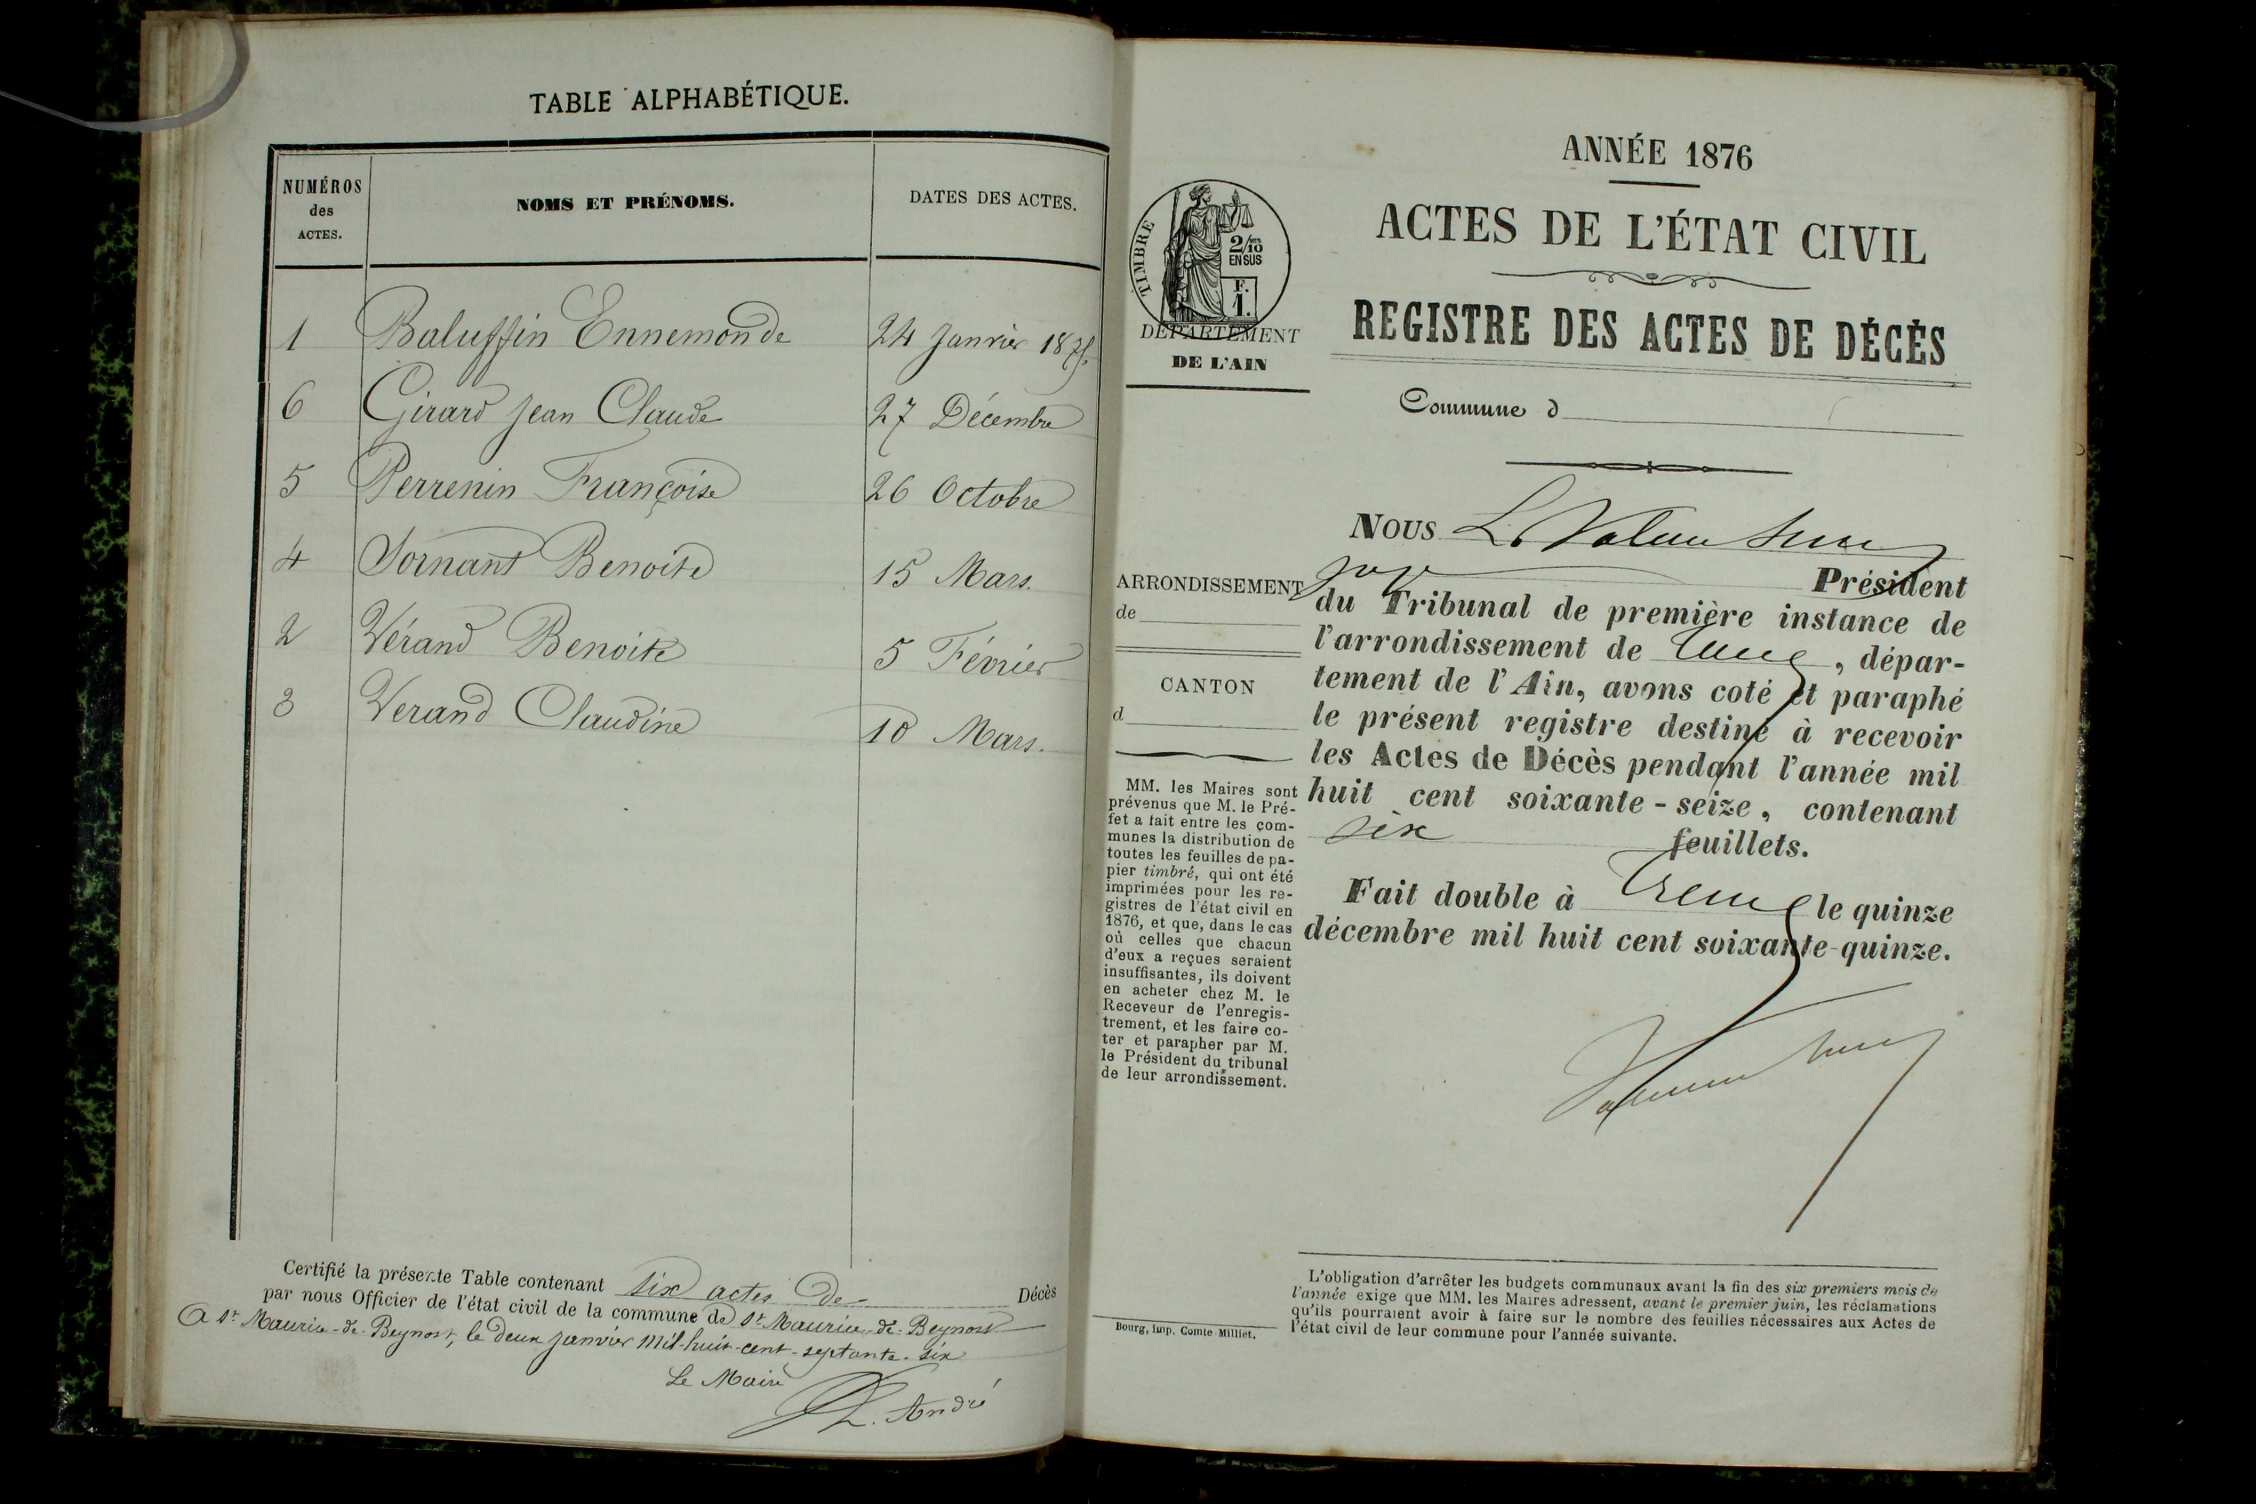 TABLE ALPHABÉTIQUE.
NUMÉROS
des
ACTES.
NOMS ET PRÉNOMS.
DATES DES ACTES.
1 Baluffin Ennemonde 24 Janvier 1875.
6 Girard Jean Claude 27 Décembre
5 Perrenin Françoise 26 Octobre
4 Sornant Benoite 15 Mars.
2 Vérand Benoite 5 Février
3 Verand Claudine 10 Mars.
Certifié la présente Table contenant six actes de Décès
par nous Officier de l'état civil de la commune de St Maurice-de-Beynost
A St Maurice-de-Beynost, le deux janvier mil-huit-cent-septante-six
Le Maire
L. André
ANNÉE 1876
ACTES DE L'ÉTAT CIVIL
REGISTRE DES ACTES DE DÉCÈS
TIMBRE
2/10
EN SUS
F.
1.
DÉPARTEMENT
DE L'AIN
Commune d
ARRONDISSEMENT
de
CANTON
d
MM. les Maires sont
prévenus que M. le Pré-
fet a fait entre les com-
munes la distribution de
toutes les feuilles de pa-
pier timbré, qui ont été
imprimées pour les re-
gistres de l'état civil en
1876, et que, dans le cas
où celles que chacun
d'eux a reçues seraient
insuffisantes, ils doivent
en acheter chez M. le
Receveur de l'enregis-
trement, et les faire co-
ter et parapher par M.
le Président du tribunal
de leur arrondissement.
Nous
Président
du Tribunal de première instance de
l'arrondissement de , dépar-
tement de l'Ain, avons coté et paraphé
le présent registre destiné à recevoir
les Actes de Décès pendant l'année mil
huit cent soixante-seize, contenant
six feuillets.
Fait double à le quinze
décembre mil huit cent soixante-quinze.
L'obligation d'arrêter les budgets communaux avant la fin des six premiers mois de
l'année exige que MM. les Maires adressent, avant le premier juin, les réclamations
qu'ils pourraient avoir à faire sur le nombre des feuilles nécessaires aux Actes de
l'état civil de leur commune pour l'année suivante.
Bourg, imp. Comte-Milliet.